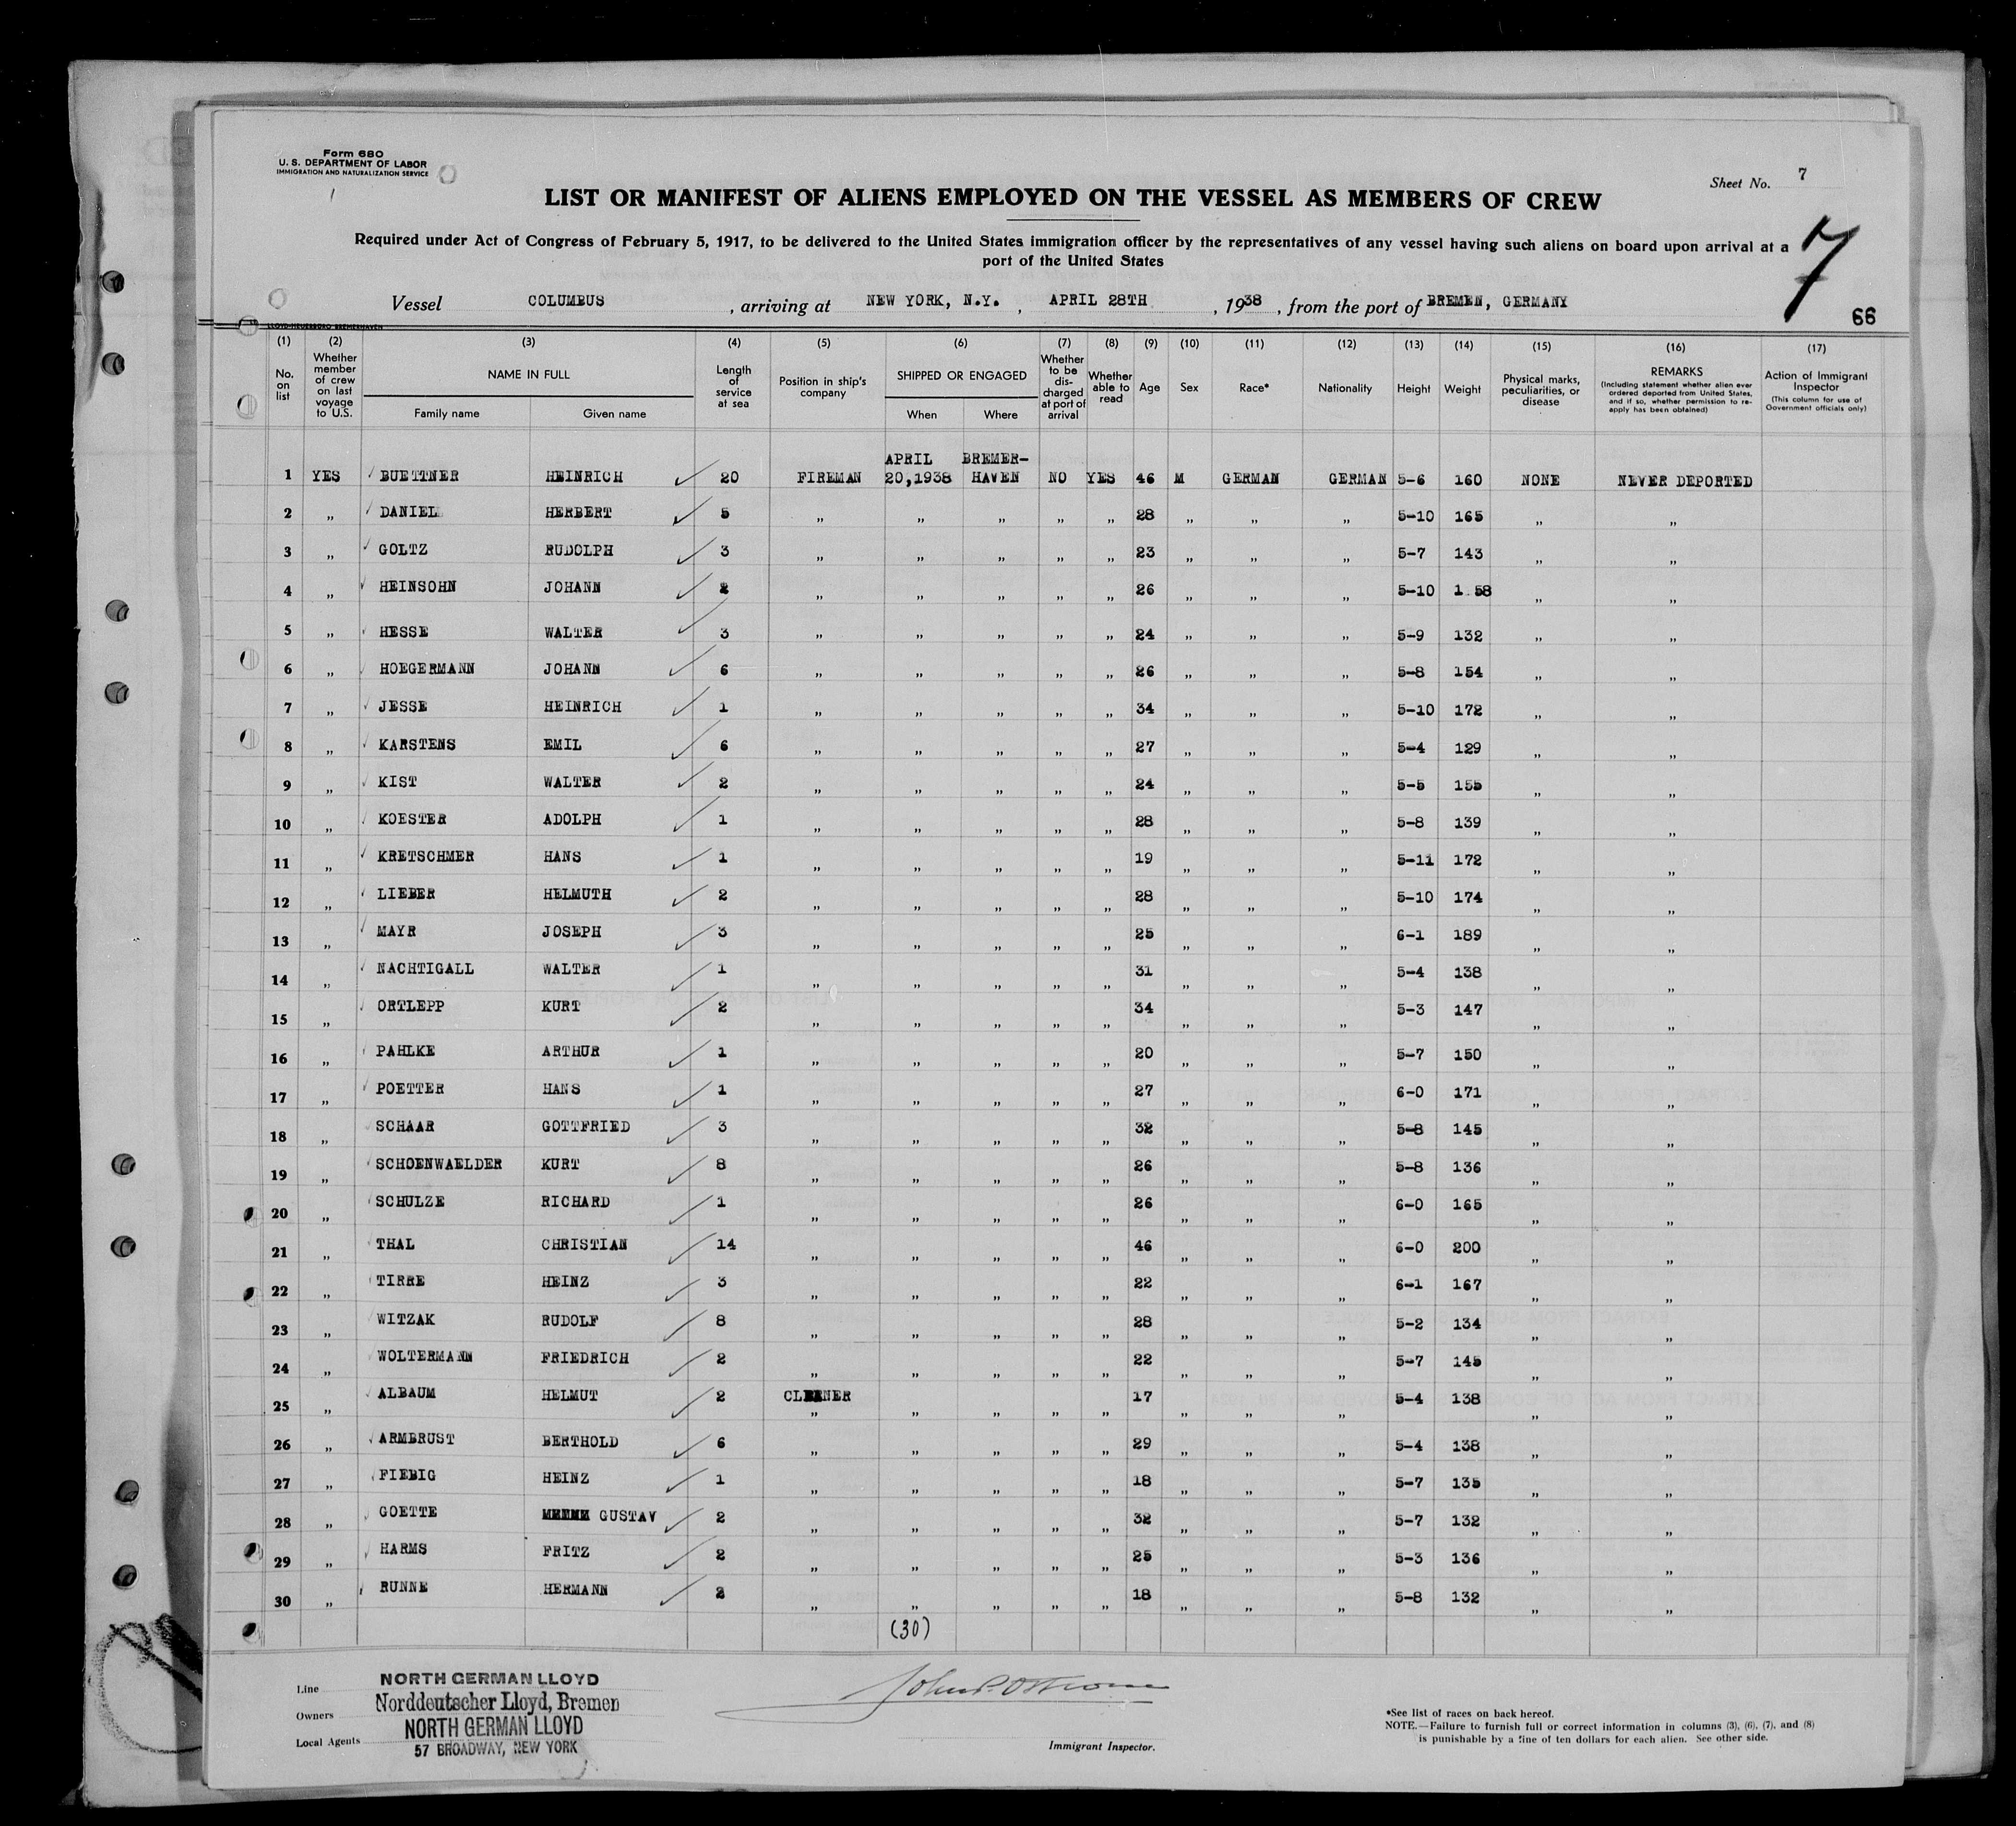 Form 680
U. S. DEPARTMENT OF LABOR
IMMIGRATION AND NATURALIZATION SERVICE
Sheet No. 7
LIST OR MANIFEST OF ALIENS EMPLOYED ON THE VESSEL AS MEMBERS OF CREW
Required under Act of Congress of February 5, 1917, to be delivered to the United States immigration officer by the representatives of any vessel having such aliens on board upon arrival at a
port of the United States
7
Vessel COLUMBUS , arriving at NEW YORK, N.Y. , APRIL 28TH , 1938 , from the port of BREMEN, GERMANY
66
(1) (2) (3) (4) (5) (6) (7) (8) (9) (10) (11) (12) (13) (14) (15) (16) (17)
No. on list Whether member of crew on last voyage to U.S. NAME IN FULL Family name Given name Length of service at sea Position in ship's company SHIPPED OR ENGAGED When Where Whether to be discharged at port of arrival Whether able to read Age Sex Race* Nationality Height Weight Physical marks, peculiarities, or disease REMARKS (Including statement whether alien ever ordered deported from United States, and if so, whether permission to re-apply has been obtained) Action of Immigrant Inspector (This column for use of Government officials only)
APRIL BREMER-
1 YES BUETTNER HEINRICH 20 FIREMAN 20,1938 HAVEN NO YES 46 M GERMAN GERMAN 5-6 160 NONE NEVER DEPORTED
2 „ DANIEL HERBERT 5 „ „ „ „ „ 28 „ „ „ 5-10 165 „ „
3 „ GOLTZ RUDOLPH 3 „ „ „ „ „ 23 „ „ „ 5-7 143 „ „
4 „ HEINSOHN JOHANN 2 „ „ „ „ „ 26 „ „ „ 5-10 1 58 „ „
5 „ HESSE WALTER 3 „ „ „ „ „ 24 „ „ „ 5-9 132 „ „
6 „ HOEGERMANN JOHANN 6 „ „ „ „ „ 26 „ „ „ 5-8 154 „ „
7 „ JESSE HEINRICH 1 „ „ „ „ „ 34 „ „ „ 5-10 172 „ „
8 „ KARSTENS EMIL 6 „ „ „ „ „ 27 „ „ „ 5-4 129 „ „
9 „ KIST WALTER 2 „ „ „ „ „ 24 „ „ „ 5-5 155 „ „
10 „ KOESTER ADOLPH 1 „ „ „ „ „ 28 „ „ „ 5-8 139 „ „
11 „ KRETSCHMER HANS 1 „ „ „ „ „ 19 „ „ „ 5-11 172 „ „
12 „ LIEBER HELMUTH 2 „ „ „ „ „ 28 „ „ „ 5-10 174 „ „
13 „ MAYR JOSEPH 3 „ „ „ „ „ 25 „ „ „ 6-1 189 „ „
14 „ NACHTIGALL WALTER 1 „ „ „ „ „ 31 „ „ „ 5-4 138 „ „
15 „ ORTLEPP KURT 2 „ „ „ „ „ 34 „ „ „ 5-3 147 „ „
16 „ PAHLKE ARTHUR 1 „ „ „ „ „ 20 „ „ „ 5-7 150 „ „
17 „ POETTER HANS 1 „ „ „ „ „ 27 „ „ „ 6-0 171 „ „
18 „ SCHAAR GOTTFRIED 3 „ „ „ „ „ 32 „ „ „ 5-8 145 „ „
19 „ SCHOENWAELDER KURT 8 „ „ „ „ „ 26 „ „ „ 5-8 136 „ „
20 „ SCHULZE RICHARD 1 „ „ „ „ „ 26 „ „ „ 6-0 165 „ „
21 „ THAL CHRISTIAN 14 „ „ „ „ „ 46 „ „ „ 6-0 200 „ „
22 „ TIRRE HEINZ 3 „ „ „ „ „ 22 „ „ „ 6-1 167 „ „
23 „ WITZAK RUDOLF 8 „ „ „ „ „ 28 „ „ „ 5-2 134 „ „
24 „ WOLTERMANN FRIEDRICH 2 „ „ „ „ „ 22 „ „ „ 5-7 145 „ „
25 „ ALBAUM HELMUT 2 CLEANER „ „ „ „ „ 17 „ „ „ 5-4 138 „ „
26 „ ARMBRUST BERTHOLD 6 „ „ „ „ „ 29 „ „ „ 5-4 138 „ „
27 „ FIEBIG HEINZ 1 „ „ „ „ „ 18 „ „ „ 5-7 135 „ „
28 „ GOETTE GUSTAV 2 „ „ „ „ „ 32 „ „ „ 5-7 132 „ „
29 „ HARMS FRITZ 2 „ „ „ „ „ 25 „ „ „ 5-3 136 „ „
30 „ RUNNE HERMANN 2 „ „ „ „ „ 18 „ „ „ 5-8 132 „ „
(30)
Line NORTH GERMAN LLOYD
Owners Norddeutscher Lloyd, Bremen
Local Agents NORTH GERMAN LLOYD
57 BROADWAY, NEW YORK
Immigrant Inspector.
*See list of races on back hereof.
NOTE.—Failure to furnish full or correct information in columns (3), (6), (7), and (8)
is punishable by a fine of ten dollars for each alien. See other side.